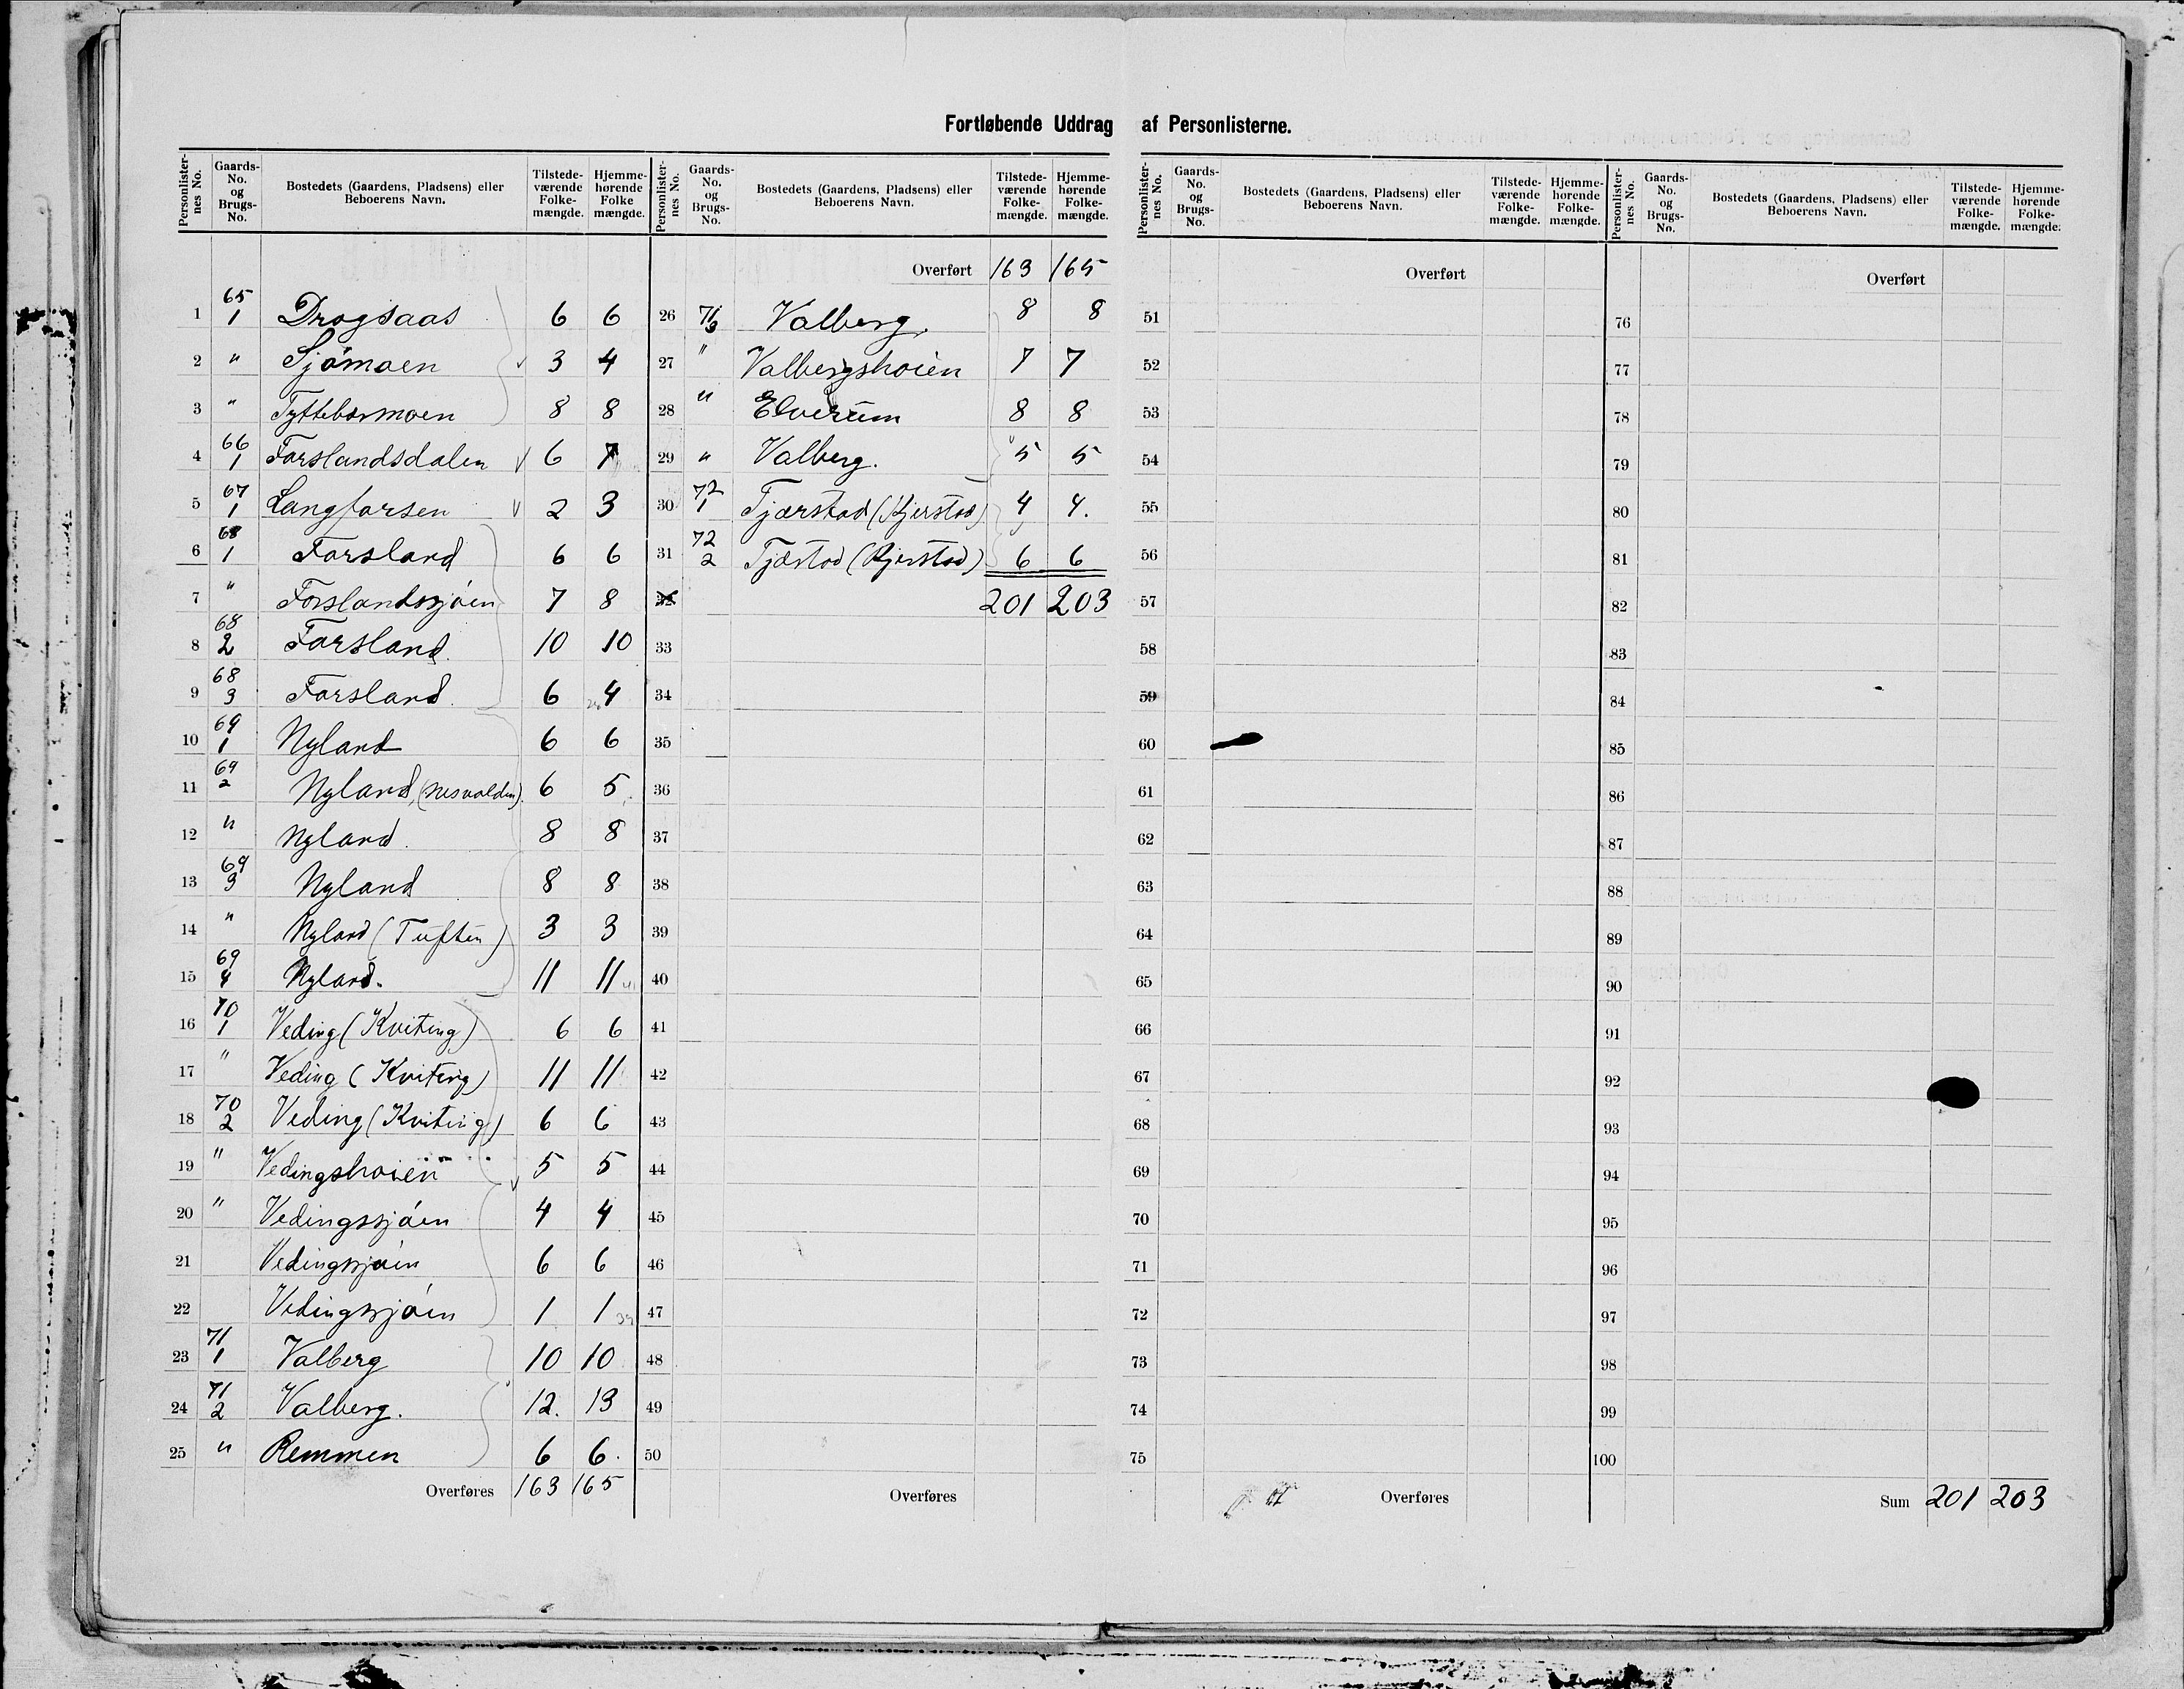 Fortløbende Uddrag af Personlisterne.
Personlister-nes No. Gaards-No. og Brugs-No. Bostedets (Gaardens, Pladsens) eller Beboerens Navn. Tilstede-værende Folke-mængde. Hjemme-hørende Folke mængde.
1 65/1 Drogsaas 6 6
2 " Sjømoen 3 4
3 " Tyttebærmoen 8 8
4 66/1 Forslandsdalen 6 7
5 67/1 Langforsen 2 3
6 68/1 Forsland 6 6
7 " Forslandssjøen 7 8
8 68/2 Forsland. 10 10
9 68/3 Forsland. 6 4
10 69/1 Nyland 6 6
11 69/2 Nyland, (Nesvolden). 6 5
12 " Nyland. 8 8
13 69/3 Nyland 8 8
14 " Nyland (Tuften) 3 3
15 69/4 Nyland. 11 11
16 70/1 Veding (Kviting) 6 6
17 " Veding (Kviting) 11 11
18 70/2 Veding (Kviting) 6 6
19 " Vedingshøien 5 5
20 " Vedingssjøen 4 4
21 Vedingssjøen 6 6
22 Vedingssjøen 1 1
23 71/1 Valberg 10 10
24 71/2 Valberg. 12. 13
25 " Remmen 6 6.
Overføres 163 165
Personlister-nes No. Gaards-No. og Brugs-No. Bostedets (Gaardens, Pladsens) eller Beboerens Navn. Tilstede-værende Folke-mængde. Hjemme-hørende Folke-mængde.
Overført 163 165
26 71/3 Valberg. 8 8
27 " Valbergshøien 7 7
28 " Elverum 8 8
29 " Valberg. 5 5
30 72/1 Tjærstad (Kjerstad) 4 4.
31 72/2 Tjæstad (Kjerstad) 6 6
32 201 203
33
34
35
36
37
38
39
40
41
42
43
44
45
46
47
48
49
50
Overføres
Personlister-nes No. Gaards-No. og Brugs-No. Bostedets (Gaardens, Pladsens) eller Beboerens Navn. Tilstede-værende Folke-mængde. Hjemme-hørende Folke-mængde.
Overført
51
52
53
54
55
56
57
58
59
60
61
62
63
64
65
66
67
68
69
70
71
72
73
74
75
Overføres
Personlister-nes No. Gaards-No. og Brugs-No. Bostedets (Gaardens, Pladsens) eller Beboerens Navn. Tilstede-værende Folke-mængde. Hjemme-hørende Folke-mængde.
Overført
76
77
78
79
80
81
82
83
84
85
86
87
88
89
90
91
92
93
94
95
96
97
98
99
100
Sum 201 203